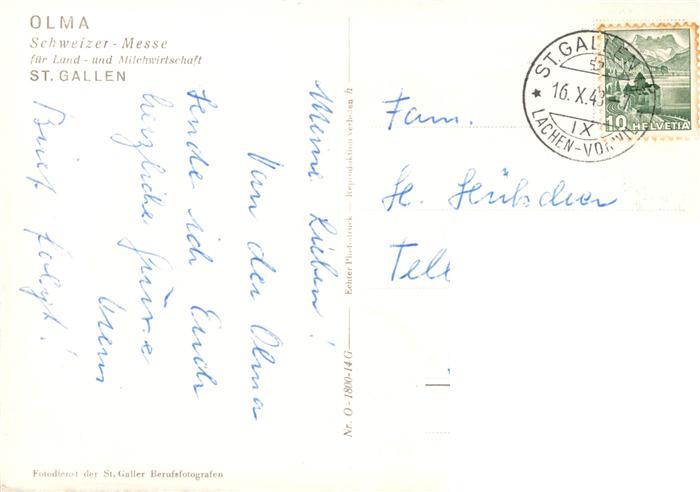 OLMA
Schweizer - Messe
für Land - und Milchwirtschaft
ST. GALLEN
Meine Lieben!
Von der Olma
sende ich Euch
herzliche Grüsse
Brief folgt!
Nr. O - 1800-14 G
Echter Photodruck
Reproduktion verboten
Fotodienst der St. Galler Berufsfotografen
Fam.
Tele
ST. GALLEN
16. X. 43
IX
LACHEN-VONWIL
10 HELVETIA